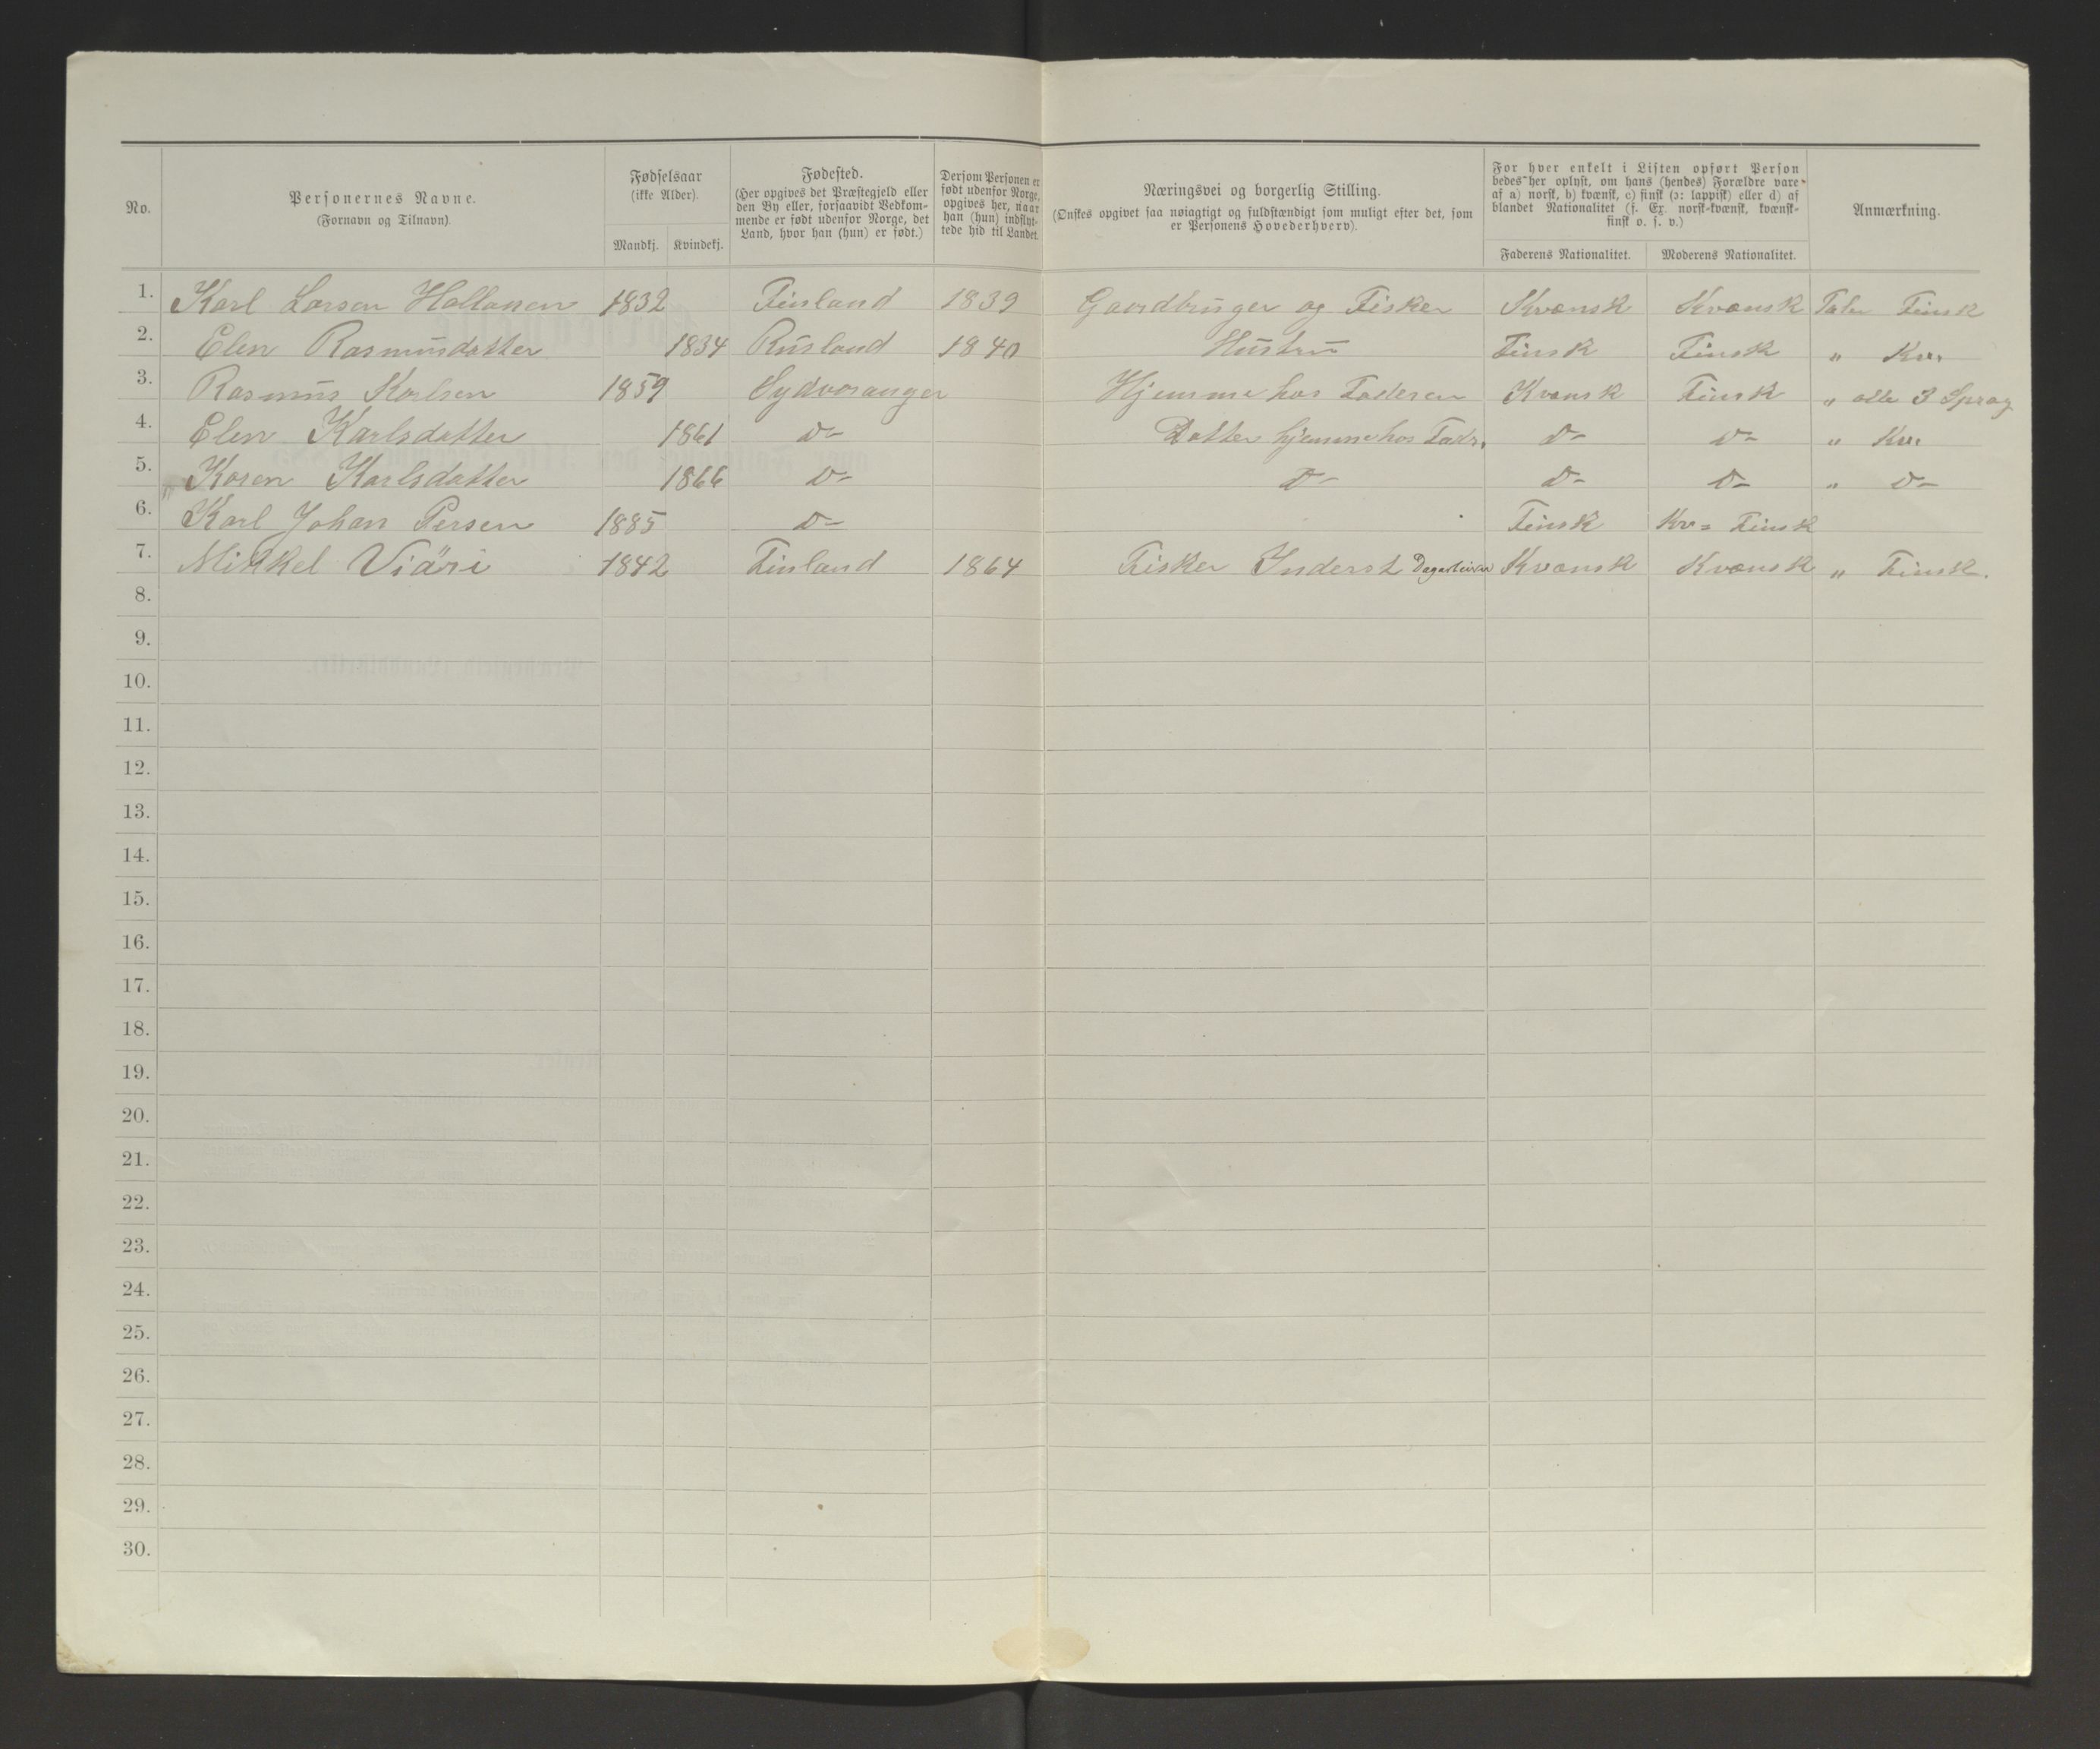 No.
Personernes Navne.
(Fornavn og Tilnavn).
Fødselsaar
(ikke Alder).
Mandkj. Kvindekj.
Fødested.
(Her opgives det Præstegjeld eller
den By eller, forsaavidt Vedkom-
mende er født udenfor Norge, det
Land, hvor han (hun) er født.)
Dersom Personen er
født udenfor Norge,
opgives her, naar
han (hun) indflyt-
tede hid til Landet.
Næringsvei og borgerlig Stilling.
(Ønskes opgivet saa nøiagtigt og fuldstændigt som muligt efter det, som
er Personens Hovederhverv).
For hver enkelt i Listen opført Person
bedes her oplyst, om hans (hendes) Forældre vare
af a) norsk, b) kvænsk, c) finsk (ɔ: lappisk) eller d) af
blandet Nationalitet (f. Ex. norsk-kvænsk, kvænsk-
finsk o. s. v.)
Faderens Nationalitet. Moderens Nationalitet.
Anmærkning.
1. Karl Larsen Hallanen 1832 Finland 1839 Gaardbruger og Fisker Kvænsk Kvænsk Taler Finsk
2. Elen Rasmusdatter 1834 Rusland 1840 Hustru Finsk Finsk " Kv.
3. Rasmus Karlsen 1859 Sydvaranger Hjemme hos Faderen Kvænsk Finsk " alle 3 Sprog
4. Elen Karlsdatter 1861 D- Datter hjemme hos Fadr. D- D- " Kv.
5. Karen Karlsdatter 1866 D- D- D- D- " D-
6. Karl Johan Persen 1885 D- Finsk Kv= Finsk
7. Mikkel Viäri 1842 Finland 1864 Fisker Inderst Kvænsk Kvænsk " Finsk.
8.
9.
10.
11.
12.
13.
14.
15.
16.
17.
18.
19.
20.
21.
22.
23.
24.
25.
26.
27.
28.
29.
30.